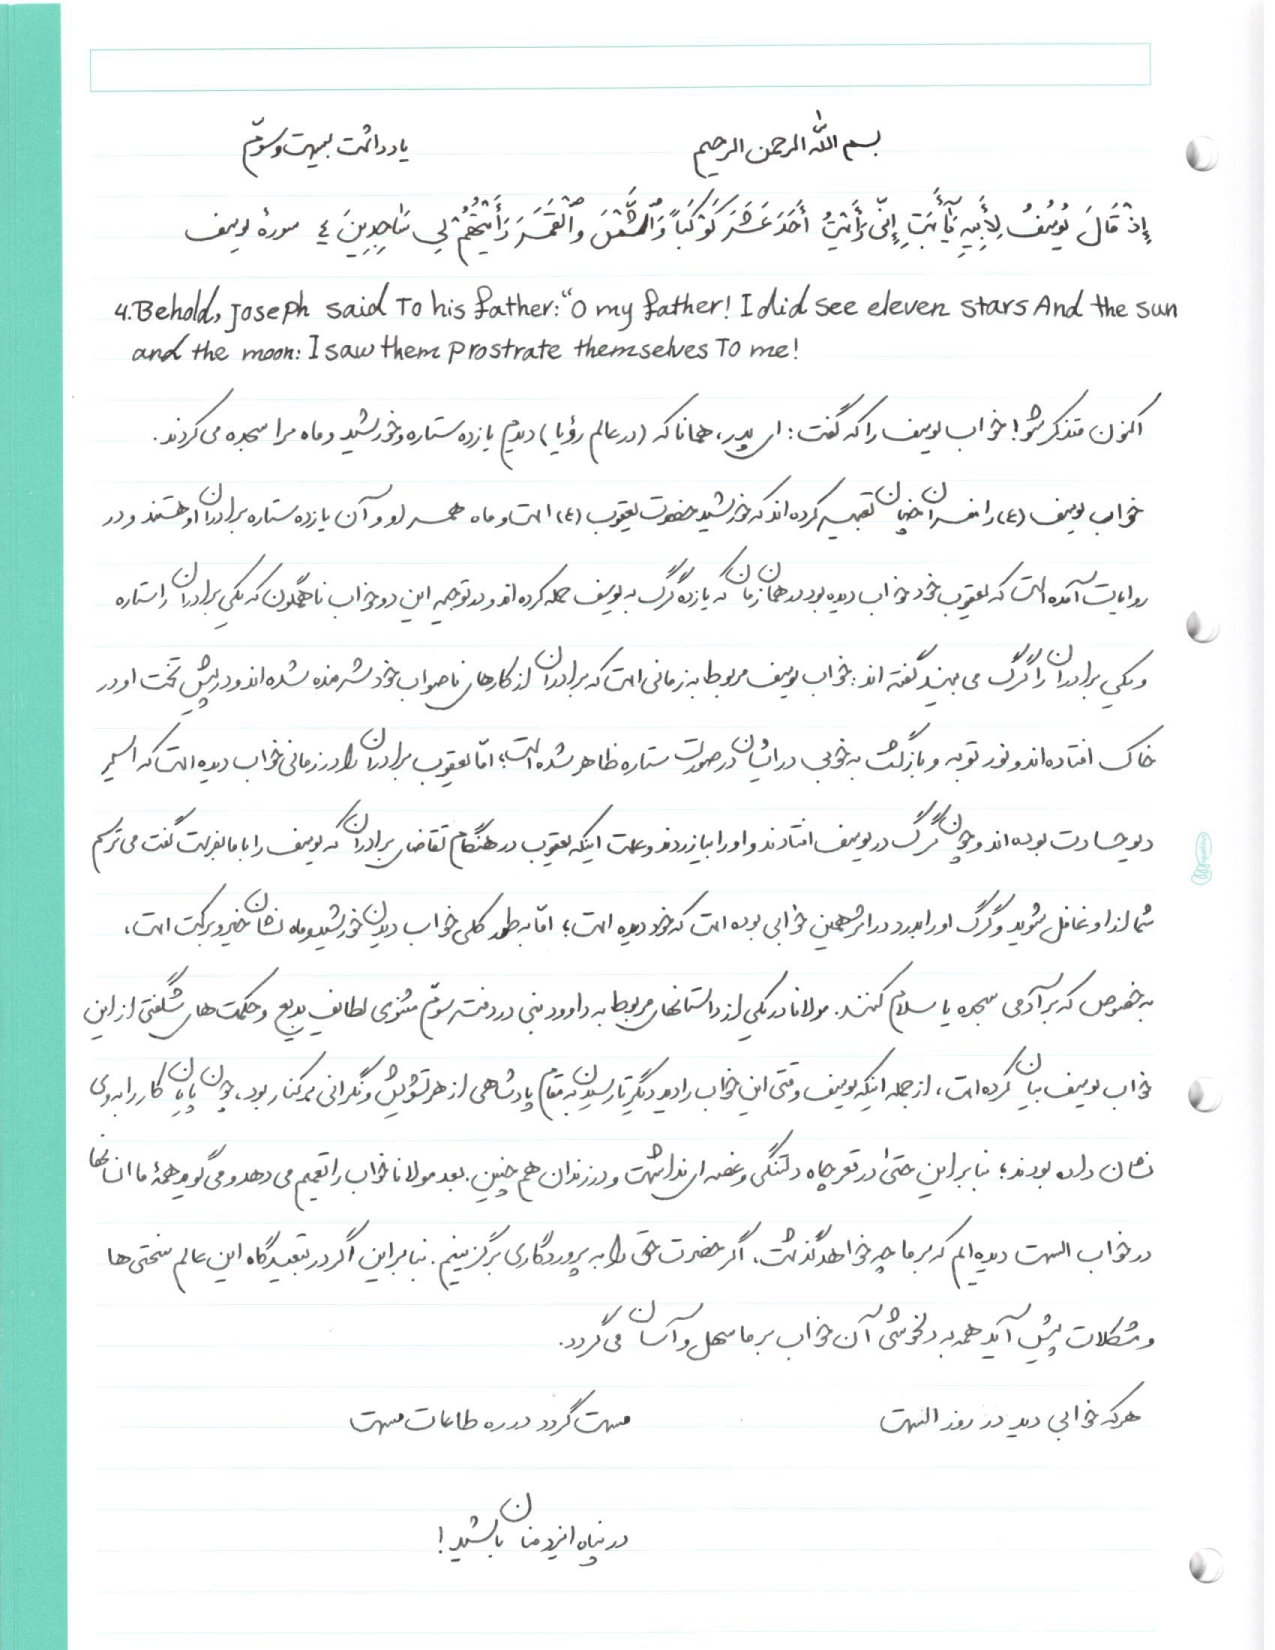 بسم الله الرحمن الرحیم یادداشت بیست و سوّم
إِذْ قَالَ يُوسُفُ لِأَبِيهِ يَآأَبَتِ إِنِّي رَأَيْتُ أَحَدَ عَشَرَ كَوْكَبًا وَالشَّمْسَ وَالْقَمَرَ رَأَيْتُهُمْ لِي سَاجِدِينَ ٤ سورهٔ یوسف
4. Behold, Joseph said To his father: "O my father! I did see eleven stars And the sun
and the moon: I saw them prostrate themselves To me!
اکنون متذکر شو! خواب یوسف را که گفت: ای پدر، همانا که (در عالم رؤیا) دیدم یازده ستاره و خورشید و ماه مرا سجده می‌کردند.
خواب یوسف (ع) را مفسران چنان تعبیر کرده‌اند که خورشید حضرت یعقوب (ع) است و ماه همسر او و آن یازده ستاره برادران او هستند و در
روایات آمده است که یعقوب خود خواب دیده بود در همان زمان که یازده گرگ به یوسف حمله کرده‌اند و در توجیه این دو خواب ناهمگون که یکی برادران را ستاره
و یکی برادران را گرگ می‌بیند گفته‌اند: خواب یوسف مربوط به زمانی است که برادران از کارهای ناصواب خود شرمنده شده‌اند و در پیش تخت او در
خاک افتاده‌اند و نور توبه و بازگشت به خوبی در ایشان در صورت ستاره ظاهر شده است؛ امّا یعقوب برادران را در زمانی خواب دیده است که اسیر
دیو حسادت بوده‌اند و چون گرگ در یوسف افتادند و او را بیازردند و علت اینکه یعقوب در هنگام تقاضای برادران که یوسف را با ما بفرست گفت می‌ترسم
شما از او غافل شوید و گرگ او را بدرد در اثر همین خوابی بوده است که خود دیده است؛ امّا به طور کلی خواب دیدن خورشید و ماه نشان خیر و برکت است،
به خصوص که بر آدمی سجده یا سلام کنند. مولانا در یکی از داستانهای مربوط به داوود نبی در دفتر سوّم مثنوی لطایف بدیع و حکمت‌های شگفتی از این
خواب یوسف بیان کرده است، از جمله اینکه یوسف وقتی این خواب را دید دیگر تا رسیدن به مقام پادشاهی از هر تشویش و نگرانی برکنار بود، چون پایان کار را به وی
نشان داده بودند؛ بنابراین حتی در قعر چاه دلتنگی و غصه‌ای نداشت و در زندان هم چنین. بعد مولانا خواب را تعمیم می‌دهد و می‌گوید همهٔ ما انسانها
در خواب الست دیده‌ایم که بر ما چه خواهد گذشت، اگر حضرت حق را به پروردگاری برگزینیم. بنابراین اگر در تبعیدگاه این عالم سختی‌ها
و مشکلات پیش آید همه به دلخوشی آن خواب بر ما سهل و آسان می‌گردد.
هرکه خوابی دید در روز الست مست گردد در ره طاعات مست
در پناه ایزد منان باشید!